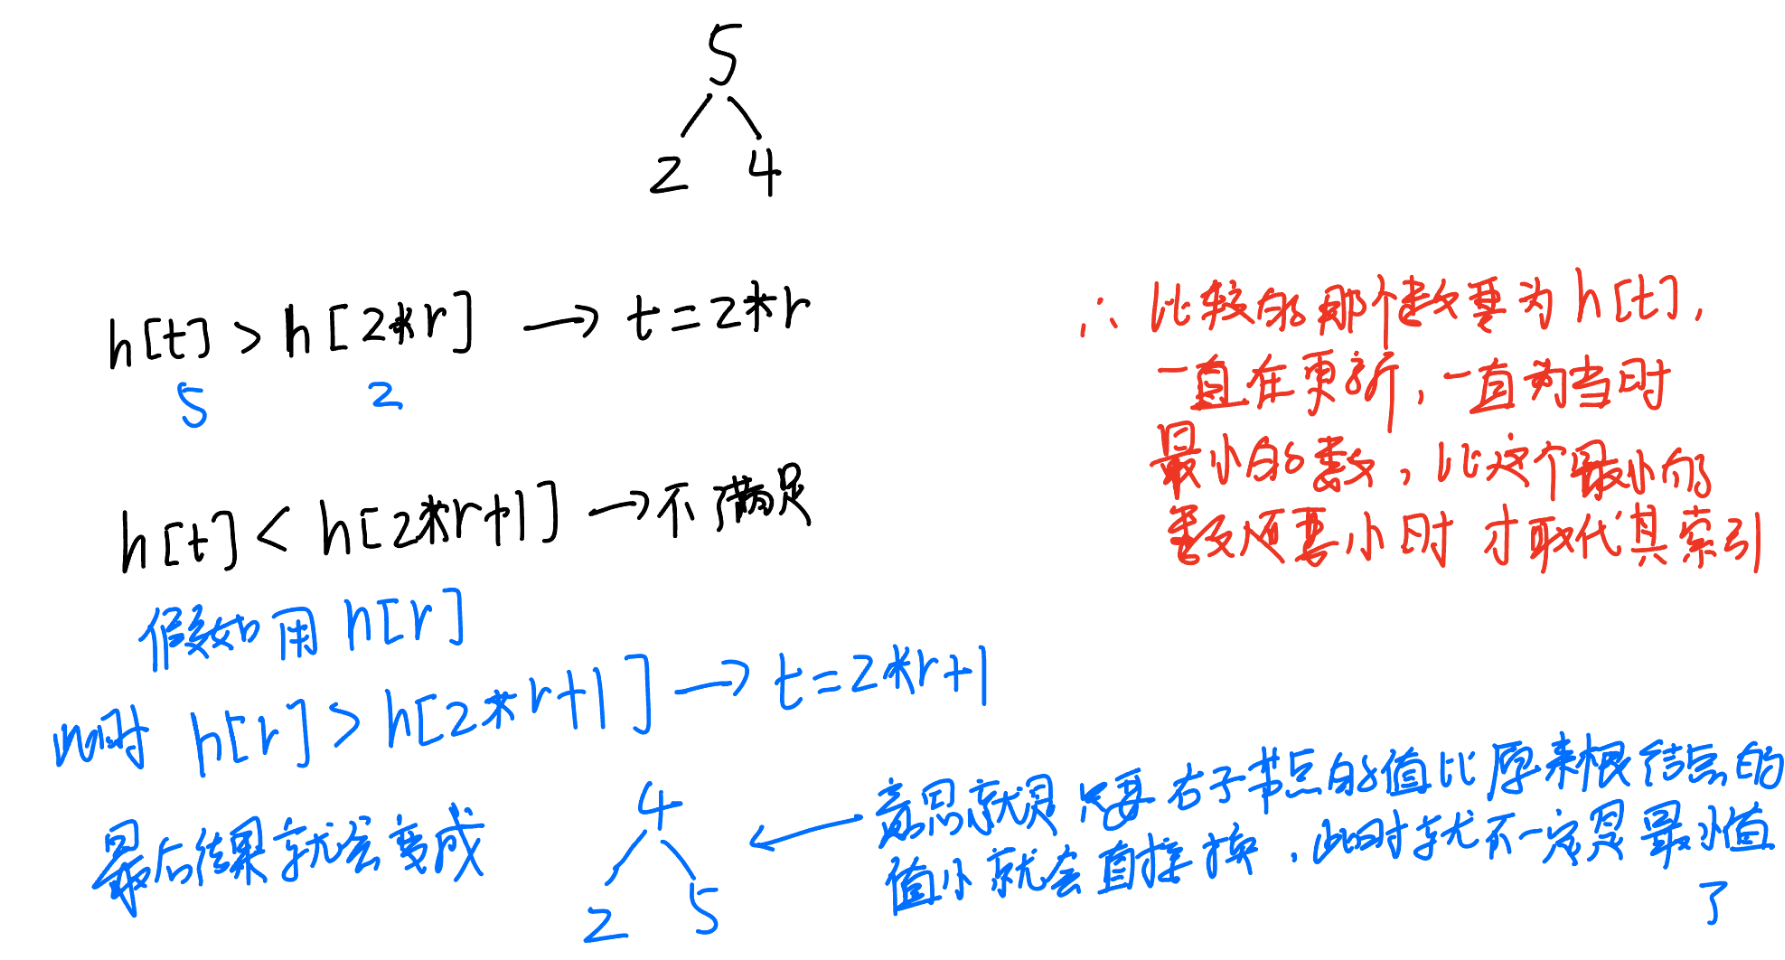 5
2 4
h[t] > h[2*r] → t=2*r
5 2
h[t] < h[2*r+1] → 不满足
假如用 h[r]
此时 h[r] > h[2*r+1] → t=2*r+1
最后结果就会变成
4
2 5
← 意思就是 只要 右子节点的值比原来根结点的
值小就会直接换，此时就不一定是最小值
了
∴ 比较的那个数要为h[t],
一直在更新，一直为当时
最小的数，比这个最小的
数还要小时 才取代其索引